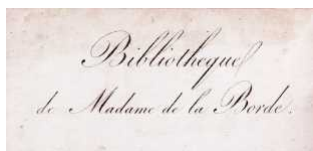 Bibliotheque
de Madame de la Borde.